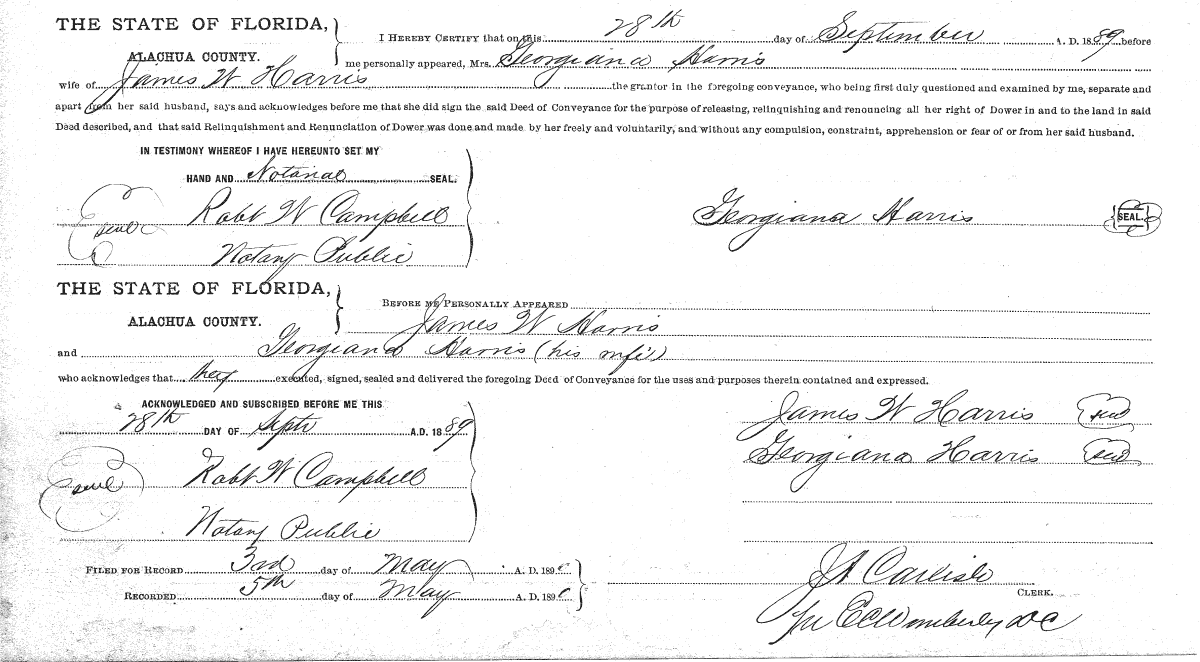 THE STATE OF FLORIDA,
ALACHUA COUNTY.
I HEREBY CERTIFY that on this 28th day of September A. D. 1889 before
me personally appeared, Mrs. Georgiana Harris
wife of James W Harris the grantor in the foregoing conveyance, who being first duly questioned and examined by me, separate and
apart from her said husband, says and acknowledges before me that she did sign the said Deed of Conveyance for the purpose of releasing, relinquishing and renouncing all her right of Dower in and to the land in said
Deed described, and that said Relinquishment and Renunciation of Dower was done and made by her freely and voluntarily, and without any compulsion, constraint, apprehension or fear of or from her said husband.
IN TESTIMONY WHEREOF I HAVE HEREUNTO SET MY
HAND AND Notarial SEAL.
seal Robt W Campbell
Notary Public
Georgiana Harris SEAL.
THE STATE OF FLORIDA,
ALACHUA COUNTY.
BEFORE ME PERSONALLY APPEARED
James W Harris
and Georgiana Harris (his wife)
who acknowledges that they executed, signed, sealed and delivered the foregoing Deed of Conveyance for the uses and purposes therein contained and expressed.
ACKNOWLEDGED AND SUBSCRIBED BEFORE ME THIS
28th DAY OF Septr A.D. 1889
seal Robt W Campbell
Notary Public
James W Harris seal
Georgiana Harris seal
FILED FOR RECORD 3rd day of May A. D. 189
RECORDED 5th day of May A. D. 189
J A Carlisle
CLERK.
Wimberley DC